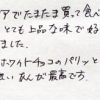 アでたまたま買って食べ
とても上品な味で好
ました。
ホワイトチョコのパリッと
あんが最高です。